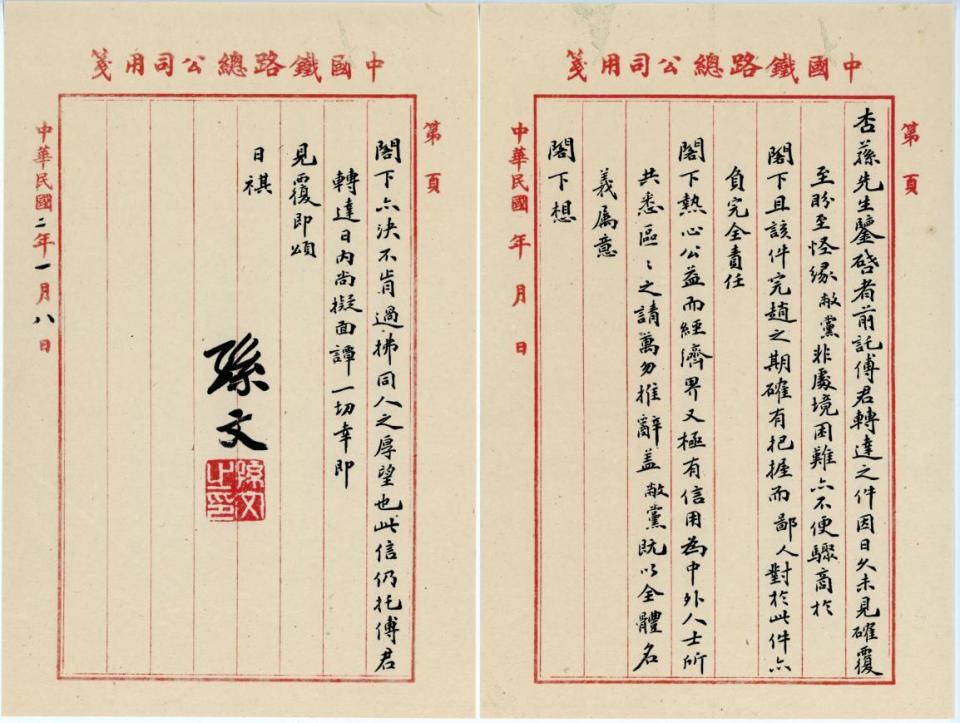 中國鐵路總公司用箋
第 頁
杏蓀先生鑒啓者前託傅君轉達之件因日久未見確覆
至盼至怪緣敝黨非處境困難亦不便驟商於
閣下且該件完趙之期確有把握而鄙人對於此件亦
負完全責任
閣下熱心公益而經濟界又極有信用為中外人士所
共悉區〻之請萬勿推辭蓋敝黨既以全體名
義屬意
閣下想
中華民國 年 月 日
中國鐵路總公司用箋
第 頁
閣下亦決不肯過拂同人之厚望也此信仍托傅君
轉達日內尚擬面譚一切幸即
見覆即頌
日祺
孫文
孫文之印
中華民國二年一月八日